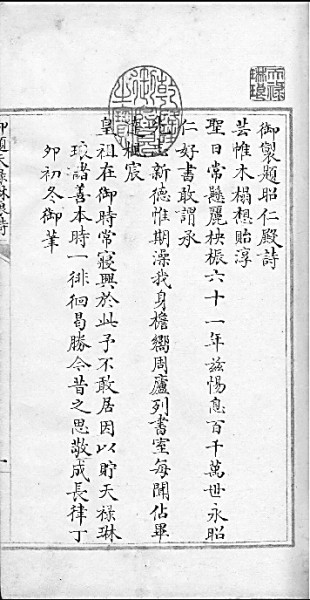 天祿琳琅
乾隆御覽之寶
御製題昭仁殿詩
芸帷木榻想貽淳
聖日常懸麗柍桭六十一年茲惕息百千萬世永昭
仁好書敢謂承
先志新德惟期澡我身檐嚮周廬列書室每聞佔畢
達楓宸
皇祖在御時常寢興於此予不敢居因以貯天祿琳
琅諸善本時一徘徊曷勝今昔之思敬成長律丁
卯初冬御筆